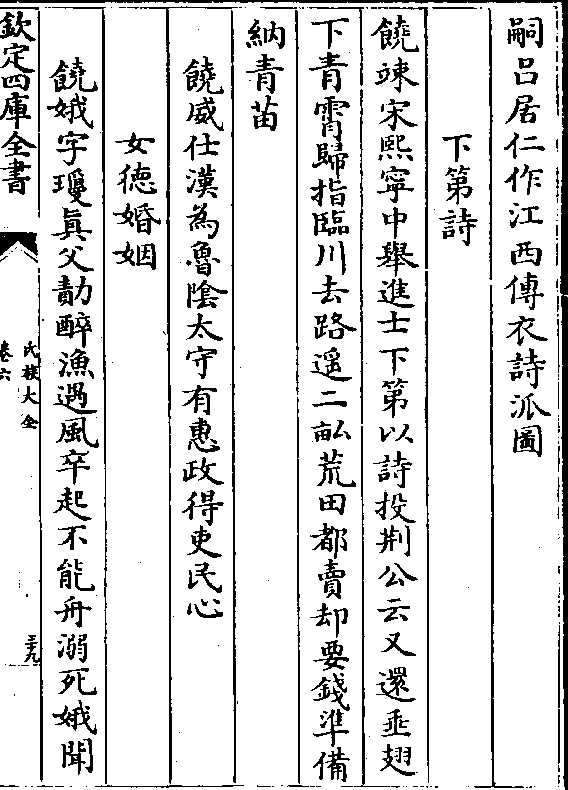 嗣吕居仁作江西傳衣詩派圖
下第詩
饒竦宋熙寧中舉進士下第以詩投荆公云又還垂翅
下青霄歸指臨川去路遥二畝荒田都賣却要錢準備
納青苗
饒威仕漢為魯隂太守有惠政得吏民心
女徳婚姻
饒娥字瓊眞父勣醉漁遇風卒起不能舟溺死娥聞
欽定四庫全書
氏族大全
卷六
三十九